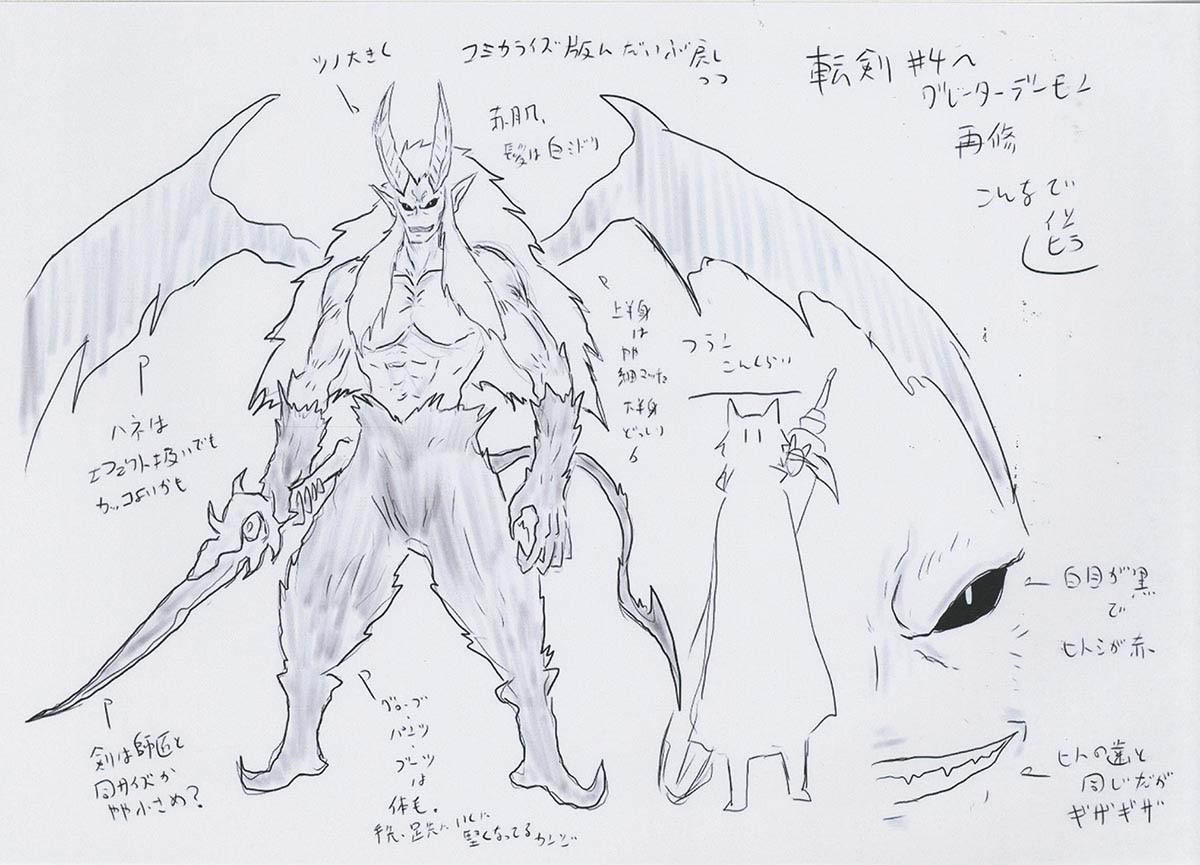 転剣 #4へ
グレーターデーモン
再修
こんなで
ツノ大きく
コミカライズ版へ だいぶ戻し
つつ
赤肌、
髪は白ミドリ
ハネは
エフェクト扱いでも
カッコよいかも
上半身
は
やや
細マッチョ
下半身
どっしり
フラン
こんくらい
白目が黒
で
ヒトミが赤
ヒトの歯と
同じだが
ギザギザ
剣は師匠と
同サイズか
やや小さめ?
グローブ・
パンツ・
ブーツ
は
体毛。
手先、足先にいくに
堅くなってるカンジ